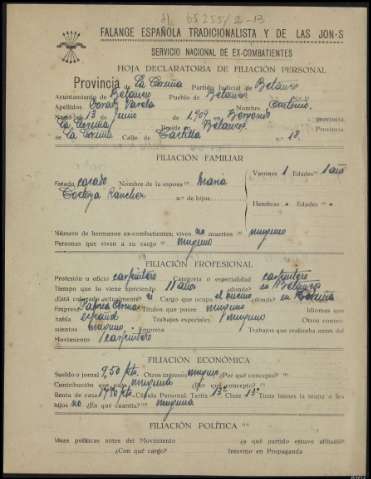 65255/2-B
FALANGE ESPAÑOLA TRADICIONALISTA Y DE LAS JON-S
SERVICIO NACIONAL DE EX-COMBATIENTES
HOJA DECLARATORIA DE FILIACIÓN PERSONAL
Provincia de La Coruña Partido Judicial de Betanzos
Ayuntamiento de Betanzos Pueblo de Betanzos
Apellidos Varela Nombre Antonio
Nació el 13 de Junio de 1.909 en provincia
La Coruña Reside en Betanzos provincia
de La Coruña Calle de Castilla n.º 18
FILIACIÓN FAMILIAR
Estado casado Nombre de la esposa Maria Varones 1 Edades 1 año
Sánchez n.º de hijos Hembras Edades
Número de hermanos ex-combatientes: vivos no muertos ninguno
Personas que viven a su cargo ninguno
FILIACIÓN PROFESIONAL
Profesión u oficio carpintero Categoría o especialidad carpintero
Tiempo que lo viene ejerciendo 11 años ¿dónde? en Betanzos
¿Está colocado actualmente? si Cargo que ocupa el mismo ¿dónde? en
Empresa Títulos que posee ninguno Idiomas que
habla español Trabajos especiales ninguno Otros conoci-
mientos ninguno Empresa Trabajos que realizaba antes del
Movimiento carpintero
FILIACIÓN ECONÓMICA
Sueldo o jornal 9,50 pts. Otros ingresos ninguno ¿Por qué concepto?
Contribución que paga ninguna ¿Por qué concepto?
Renta de casa Cédula Personal Tarifa Clase Tiene bienes la mujer o los
hijos no ¿En qué cuantía? ninguna
FILIACIÓN POLÍTICA
Ideas políticas antes del Movimiento ¿a qué partido estuvo afiliado?
¿Con qué cargo? Intervino en Propaganda